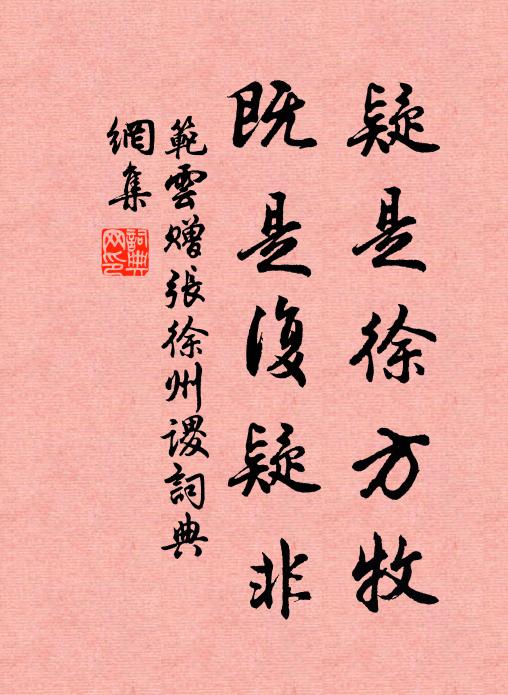 疑是徐方牧
既是復疑非
範雲赠張徐州謖詞典
網集
詞典
网印